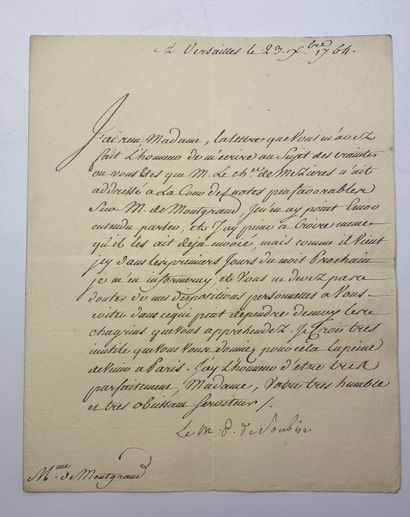 A Versailles le 23. Xbre 1764.
J'ai reçu, Madame, la lettre que vous m'avez
fait L'honneur de m'écrire au Sujet des craintes
ou vous êtes que M. Le Cher de Mezières n'ait
addressé a La Cour des notes peu favorables
Sur M. de Montgrand. Je n'en ay point Encor
entendu parler, et J'ay peine a Croire meme
qu'il les ait deja envoié, mais comme il Vient
jcy dans les premiers Jours du mois Prochain
je m'en informeray, et Vous ne devez pas
douter de mes dispositions personnelles a Vous
eviter dans ce qui peut dependre de moy les
chagrins que Vous apprehendez. Je Crois tres
inutile que Vous Vous donniez pour cela la peine
de Venir a Paris. J'ay L'honneur d'être tres
parfaitement, Madame, Votre tres humble
et tres obeissant Serviteur /.
Le M. P. de Soubise
Mme de Montgrand